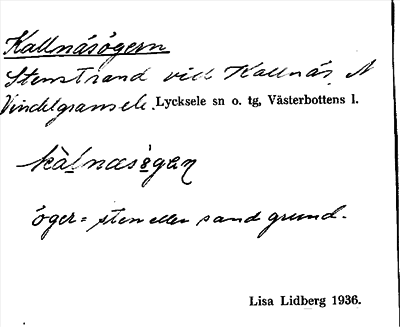 Kallnäsögern
Stenstrand vid Kallnäs, N
Vindelgransele. Lycksele sn o. tg, Västerbottens l.
kàlnæsögan
öger = sten eller sandgrund.
Lisa Lidberg 1936.